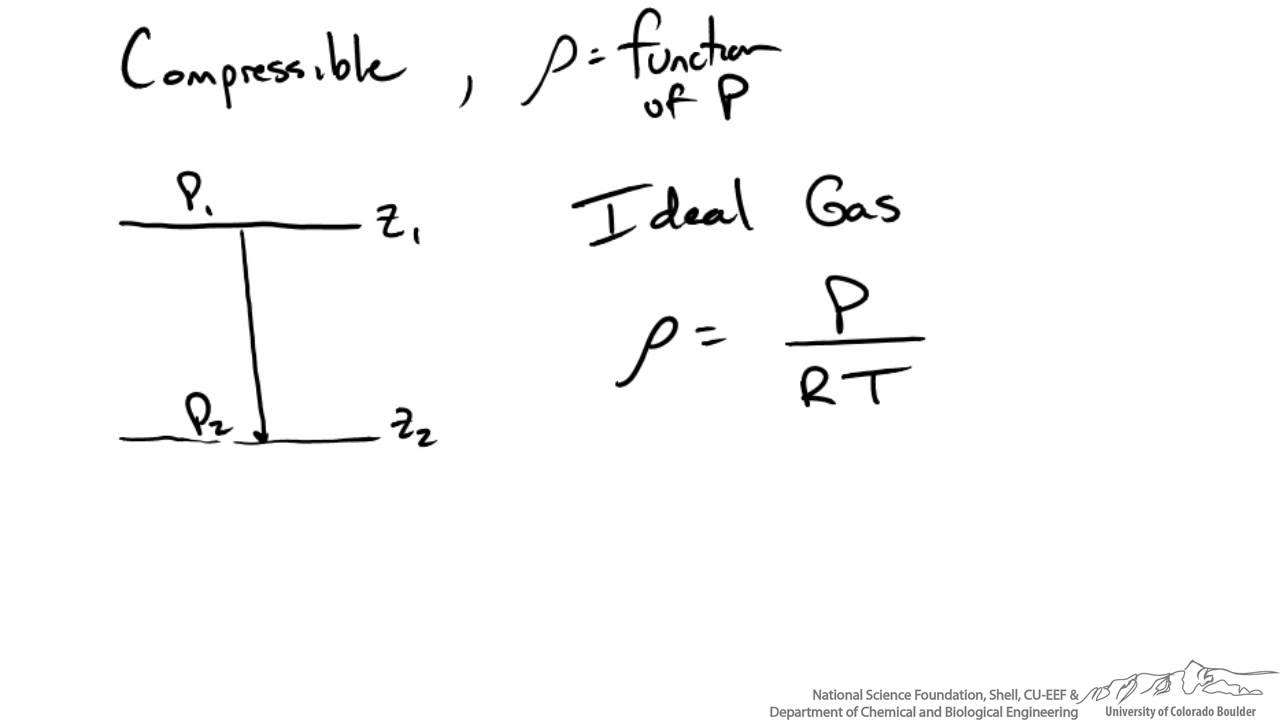 Compressible , ρ = function
of P
P₁
Z₁
P₂
Z₂
Ideal Gas
ρ = P
RT
National Science Foundation, Shell, CU-EEF &
Department of Chemical and Biological Engineering
University of Colorado Boulder